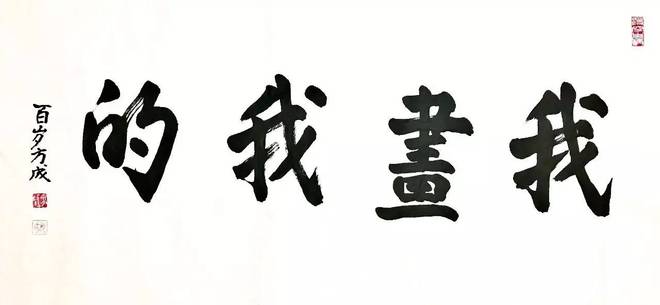 我畫我的
百岁方成